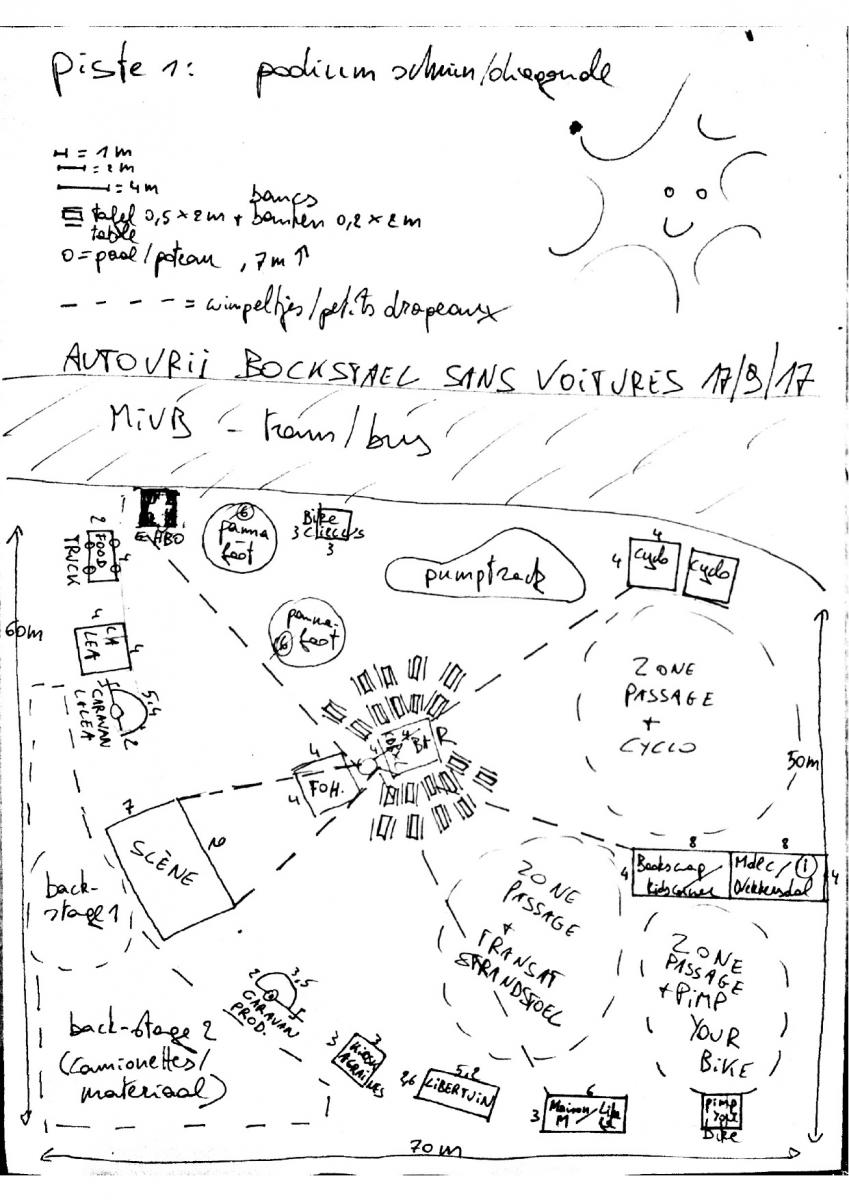 Piste 1: podium schuin/diagonale
= 1 m
= 2 m
= 4 m
bancs
tafel 0,5 x 2 m + banken 0,2 x 2 m
table
0 = paal/poteau, 7m ↑
- - - - = wimpeltjes/petits drapeaux
AUTOVRIJ BOCKSTAEL SANS VOITURES 17/9/17
MIVB - tram/bus
2
FOOD
TRUCK
4
6
panna
foot
Bike
Circus
3
3
pumptrack
4
4
cyclo
cyclo
60m
4
LEA
4
panna-
foot
6
CARAVAN
5,4
2
ZONE
PASSAGE
+
CYCLO
50m
4
4
BAR
4
4
FOH.
7
SCÈNE
back-
stage 1
8
8
4
Bookswap/
Kidscorner
Mdlc/
i
4
ZONE
PASSAGE
+
TRANSAT
STRANDSTOEL
ZONE
PASSAGE
+ PIMP
YOUR
BIKE
2
3,5
CARAVAN
PROD.
back-stage 2
(camionettes/
materiaal)
3
3
KIOSK
A GRAINES
5,2
2,6
LIBERTUIN
6
3
Maison
M
pimp
your
bike
70m